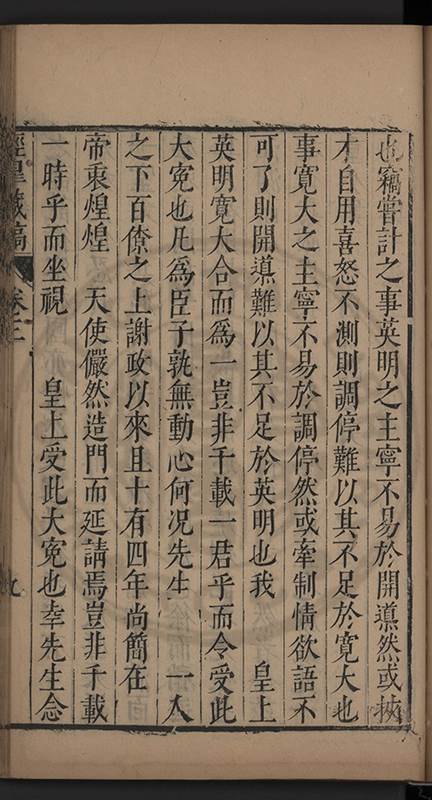 也竊嘗計之事英明之主寧不易於開導然或挾
才自用喜怒不測則調停難以其不足於寬大也
事寬大之主寧不易於調停然或牽制情欲語不
可了則開導難以其不足於英明也我　皇上
英明寬大合而爲一豈非千載一君乎而令受此
大寃也凡爲臣子孰無動心何况先生　一人
之下百僚之上謝政以來且十有四年尚簡在
帝衷煌煌　天使儼然造門而延請焉豈非千載
一時乎而坐視　皇上受此大寃也幸先生念
經皐藏稿　卷三　九